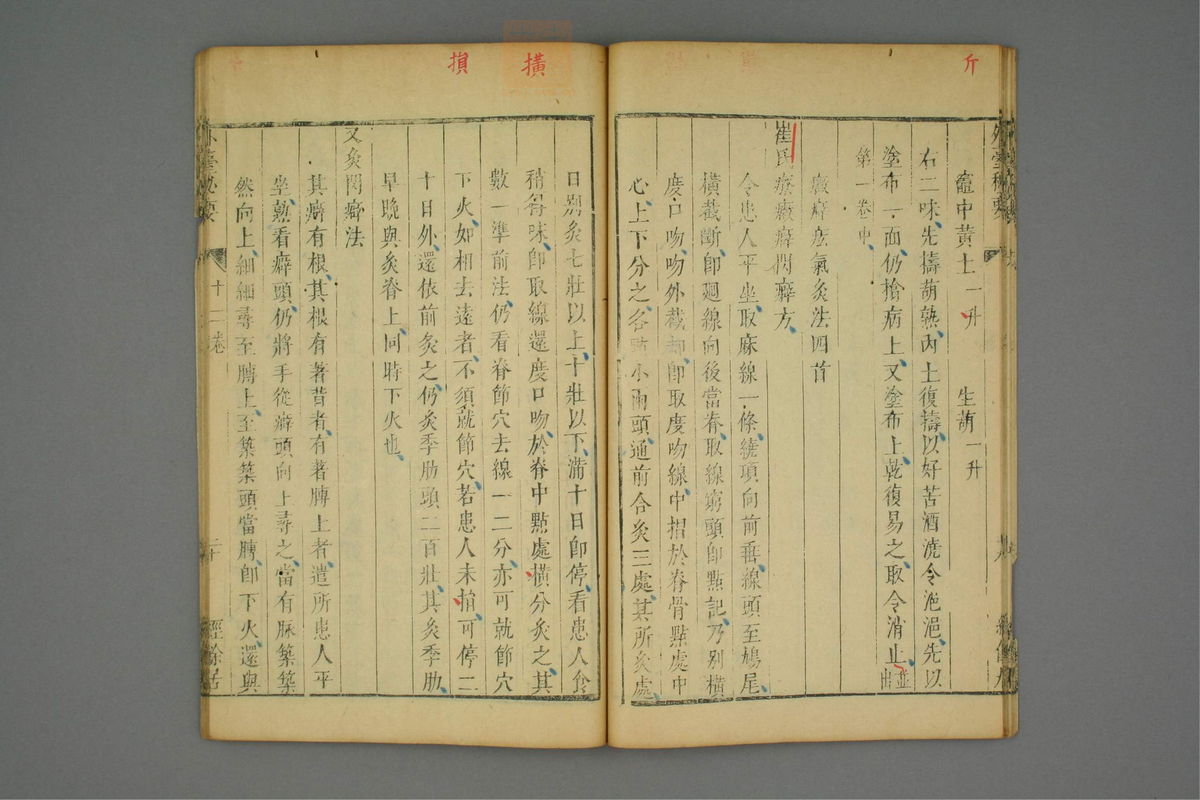 斤
外臺秘要
竈中黃土一升　生葫一升
右二味先擣葫熟內土復擣以好苦酒澆令浥浥先以
塗布一面仍搶病上又塗布上乾復易之取令消止並出
第一卷中
癥癖疝氣灸法四首
崔氏療癥癖閃癖方
令患人平坐取麻線一條繞項向前垂線頭至鳩尾
橫截斷即廻線向後當脊取線窮頭即點記乃別橫
度口吻吻外截却即取度吻線中摺於脊骨點處中
心上下分之各點小兩頭通前合灸三處其所灸處
橫
損
日別灸七壯以上十壯以下滿十日即停看患人食
稍得味即取線還度口吻於脊中點處橫分灸之其
數一準前法仍看脊節穴去線一二分亦可就節穴
下火如相去遠者不須就節穴若患人未損可停二
十日外還依前灸之仍灸季肋頭二百壯其灸季肋
早晚與灸脊上同時下火也
又灸閃癖法
其癖有根其根有著背者有著膊上者遣所患人平
坐熟看癖頭仍將手從癖頭向上尋之當有脈築築
然向上細細尋至膊上至築築頭當膊即下火還與
外臺秘要　十二卷　二十　經餘居